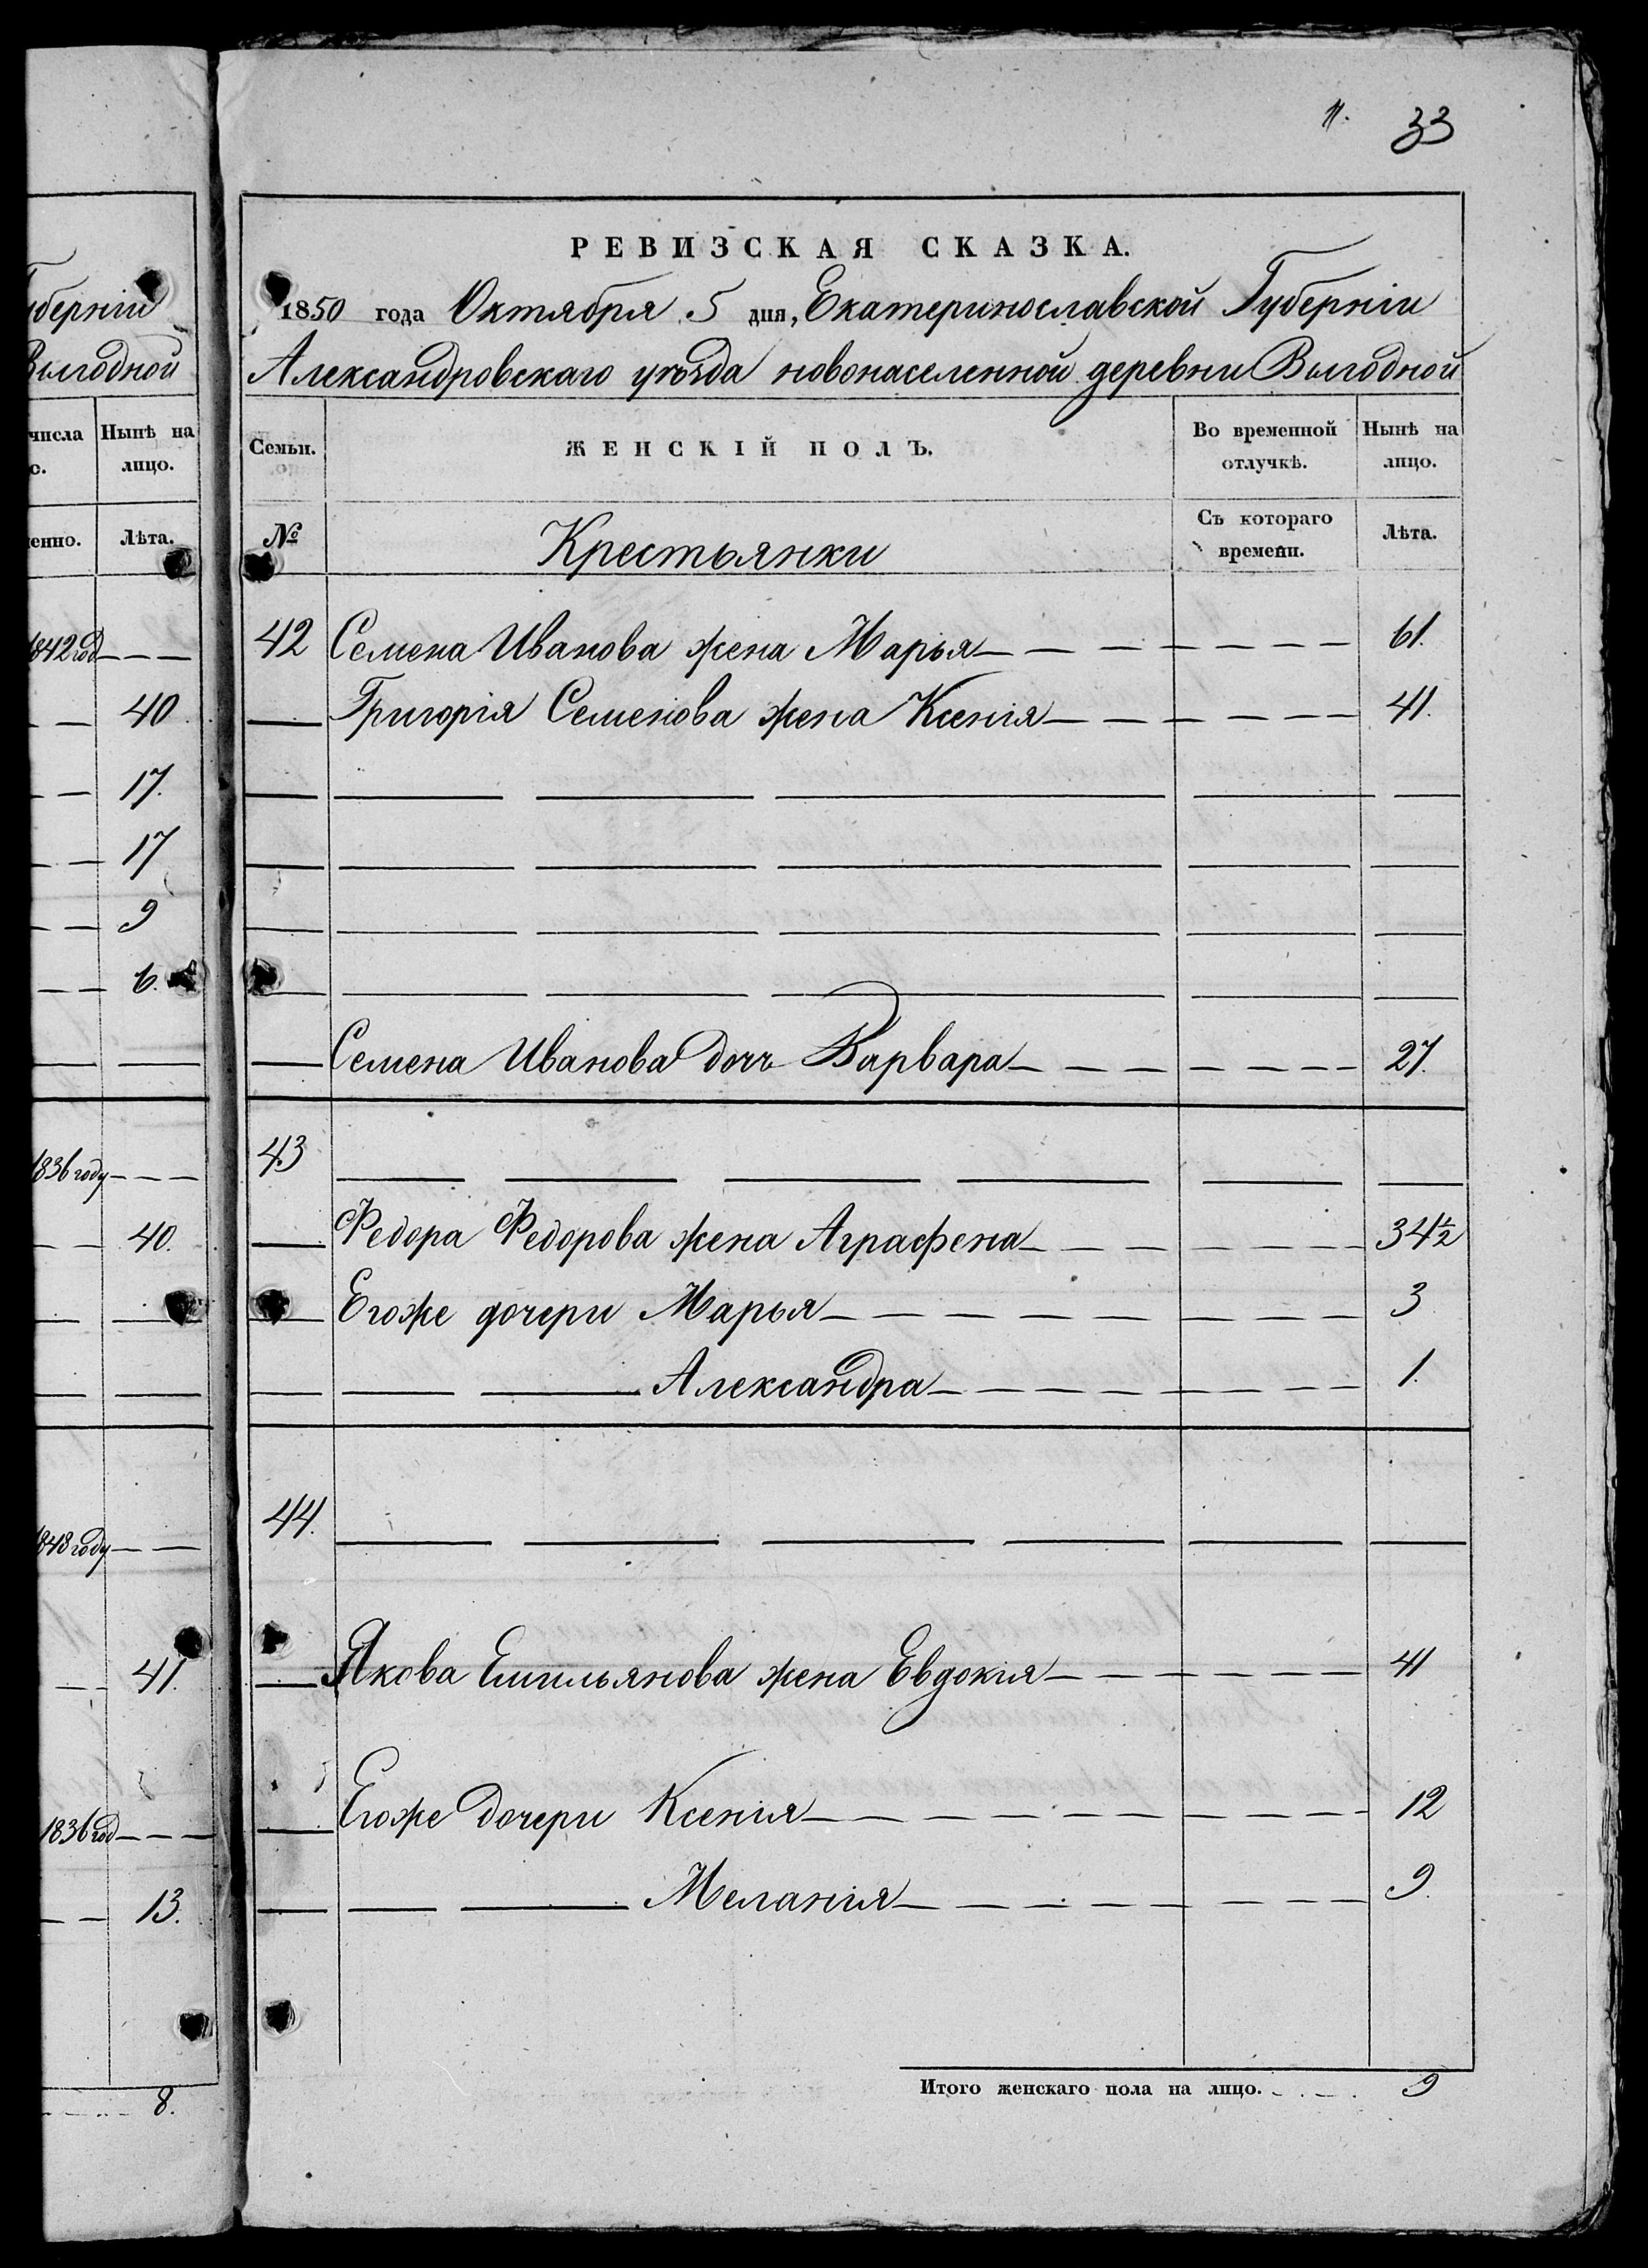 33
губерніи
Выгодной
числа Нынѣ на
лицо.
Лѣта.
1842 год
40
17.
17
9
6.
1836 году
40.
1848 году
41.
1836 год
13.
8.
РЕВИЗСКАЯ СКАЗКА.
1850 года Октября 5 дня, Екатеринославской Губерніи
Александровскаго уѣзда новонаселенной деревни Выгодной
Семьи. ЖЕНСКІЙ ПОЛЪ. Во временной отлучкѣ. Нынѣ на лицо.
№ Крестьянки Съ котораго времени. Лѣта.
42 Семена Иванова жена Марья 61.
Григорія Семенова жена Ксенія 41.
Семена Иванова дочь Варвара 27.
43
Федора Федорова жена Аграфена 34½
Егоже дочери Марья 3
Александра 1.
44.
Якова Емильянова жена Евдокія 41
Егоже дочери Ксенія 12
Меланія 9.
Итого женскаго пола на лицо. 9